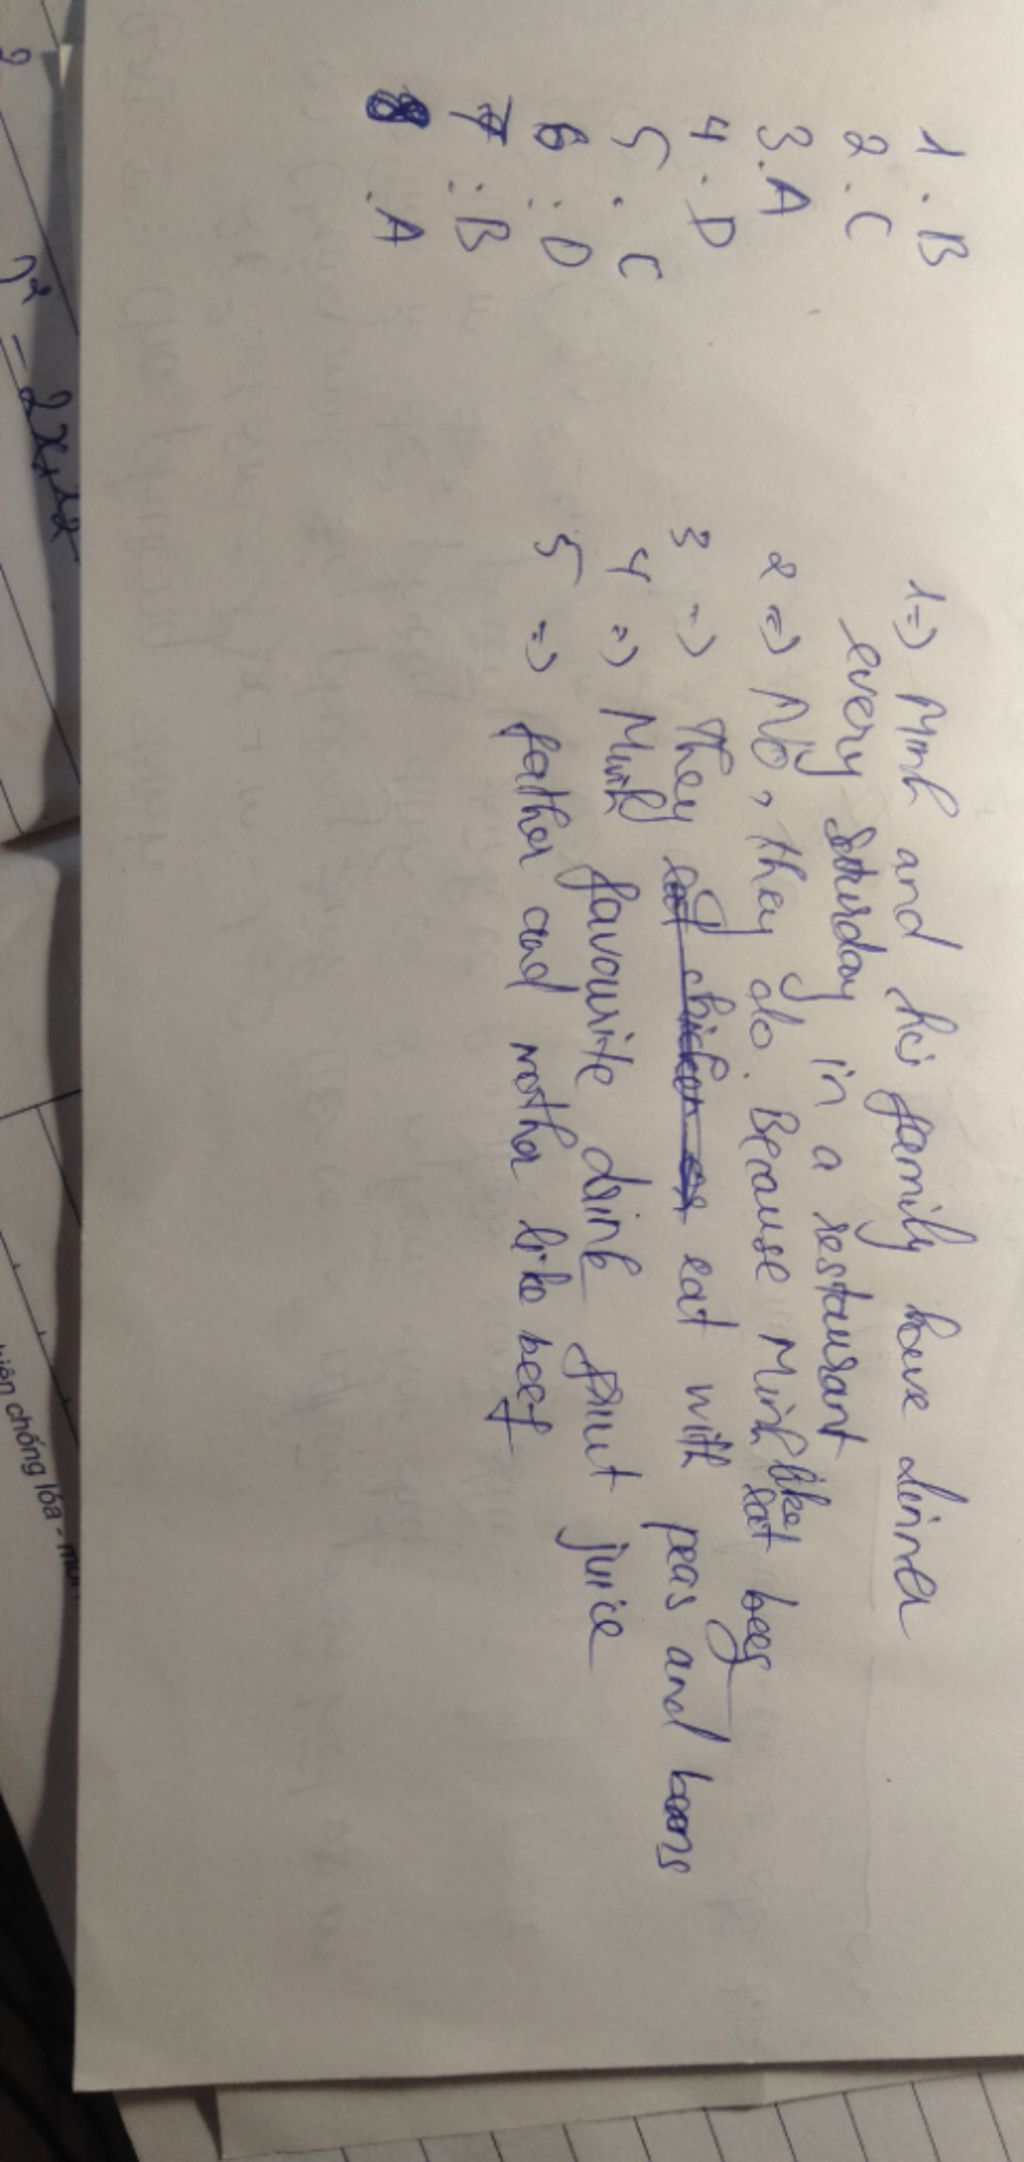 1. B
2. C
3. A
4. D
5. C
6: D
7: B
8. A
1 => Minh and his family have dinner
every Saturday in a restaurant
2 => No, they do. Because Minh like eat
3 => They eat chicken eat with peas and beans
4 => Minh favourite drink fruit juice
5 => father and mother like beef
2
= 2x+12
chống lóa -